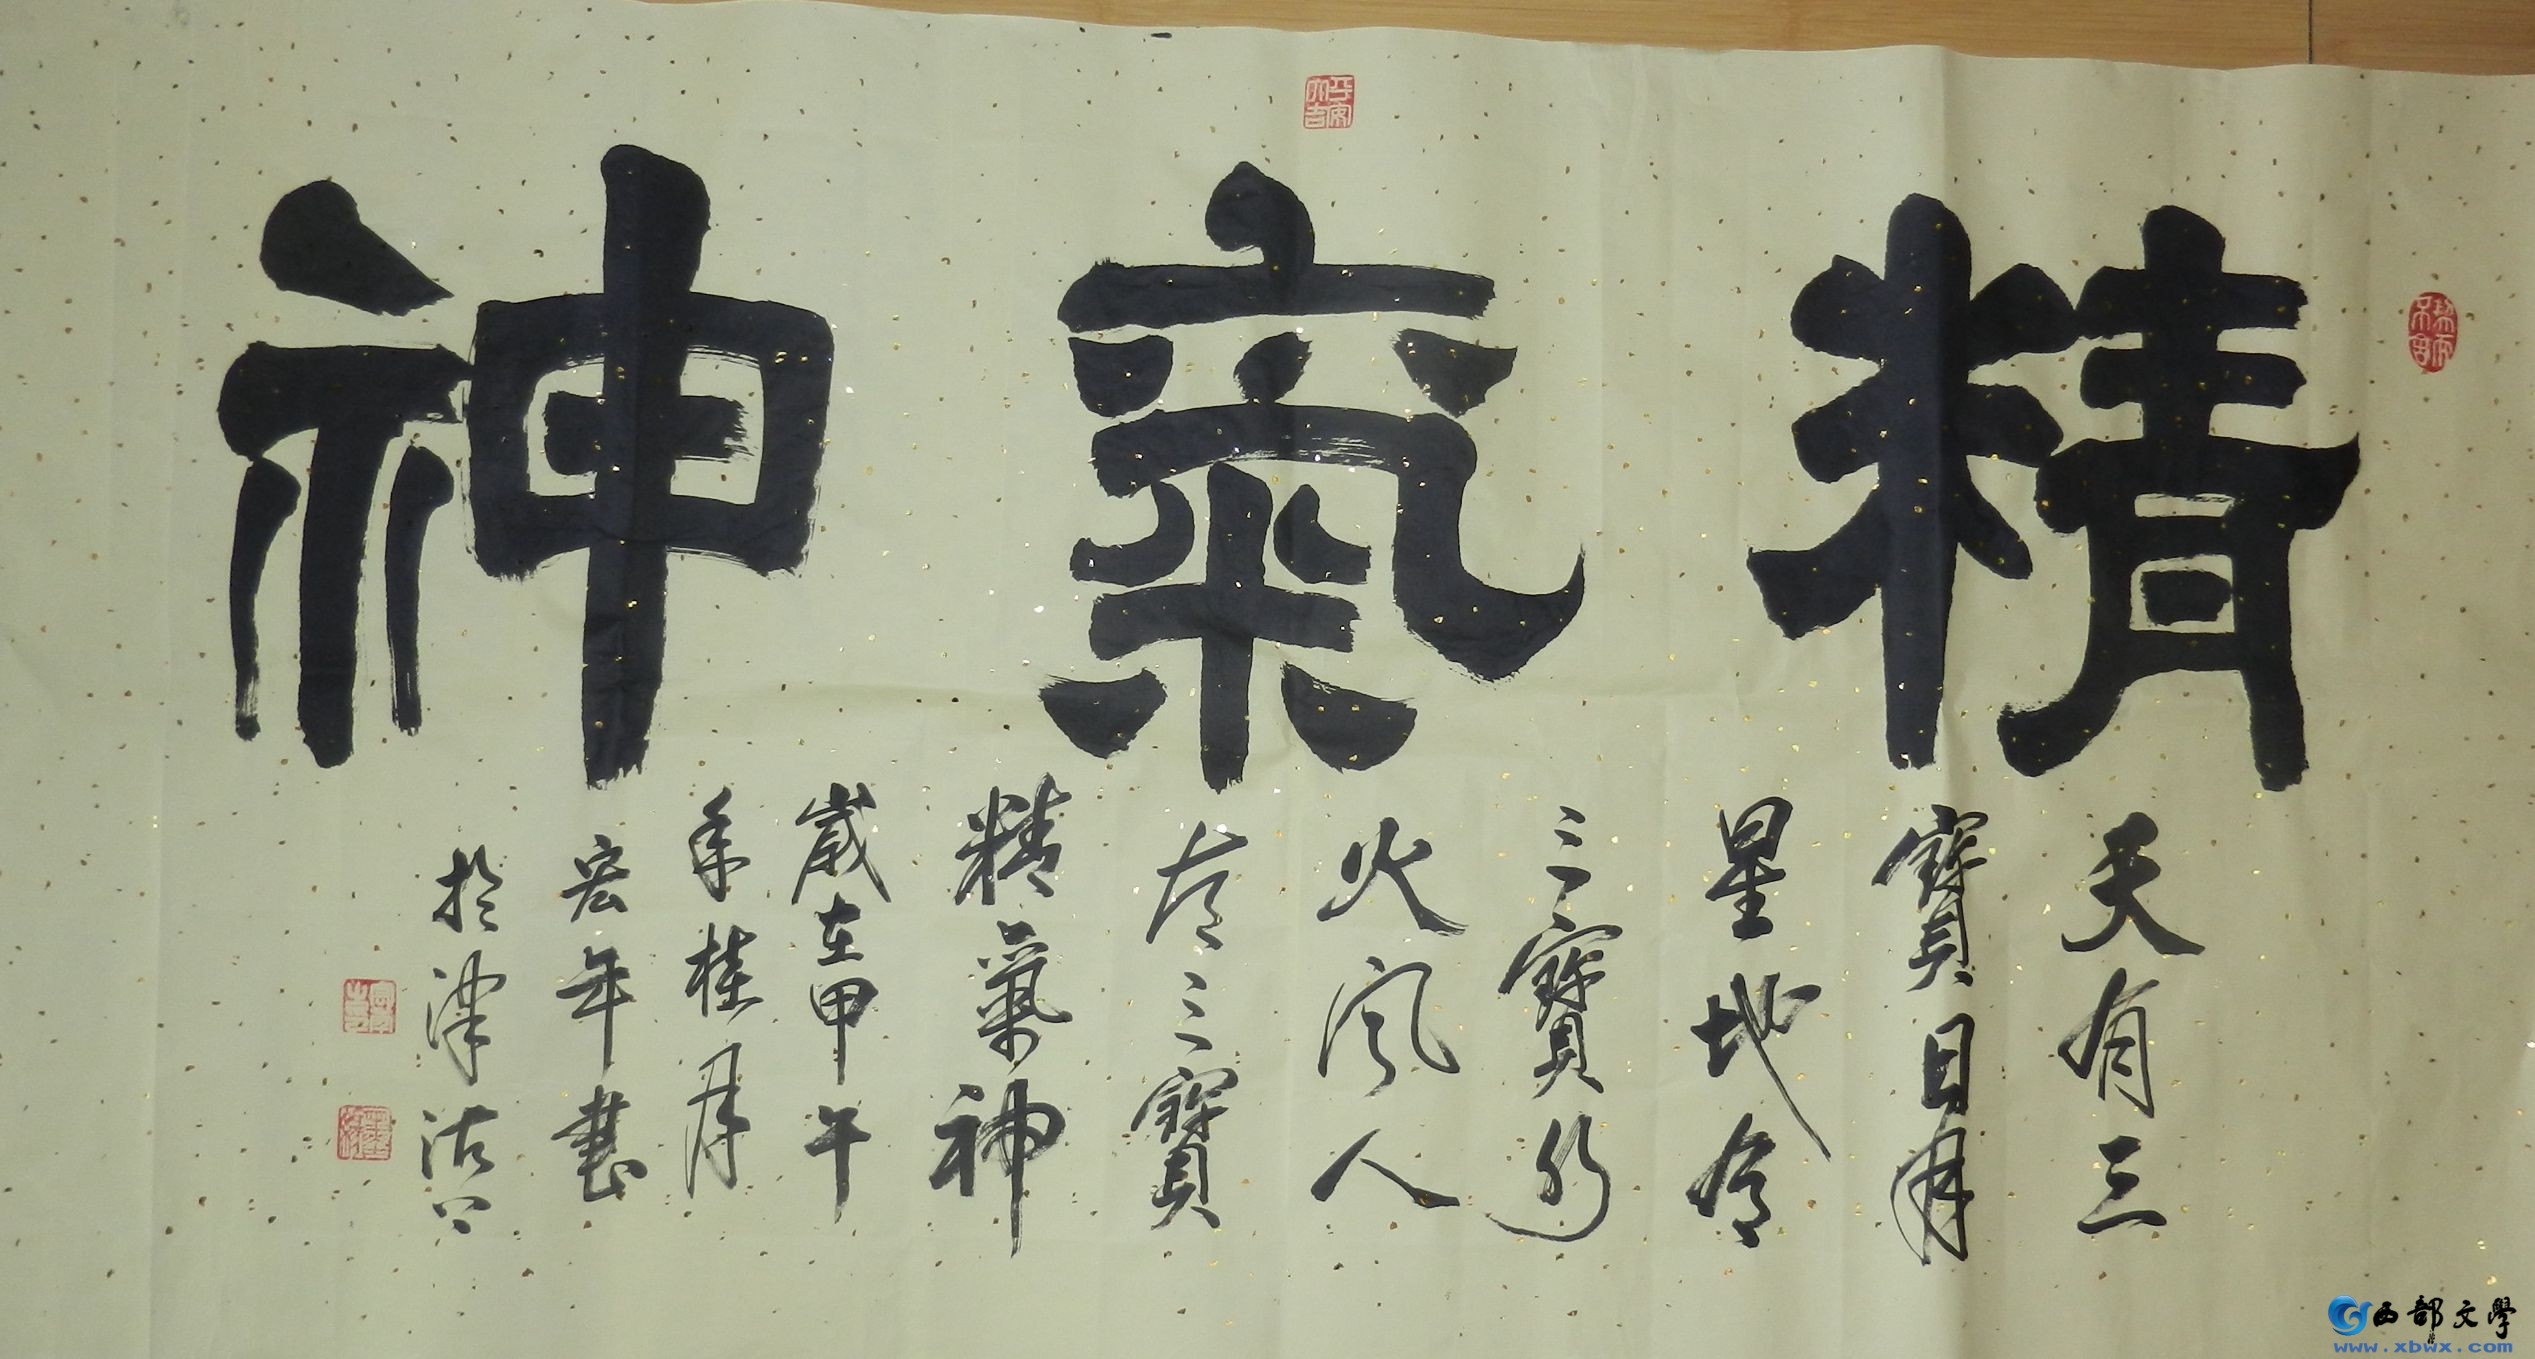 精氣神
天有三
寶日月
星地有
三寶水
火風人
有三寶
精氣神
歲在甲午
年桂月
宏年書
於津沽上
平安大吉
西部文學
www.xbwx.com